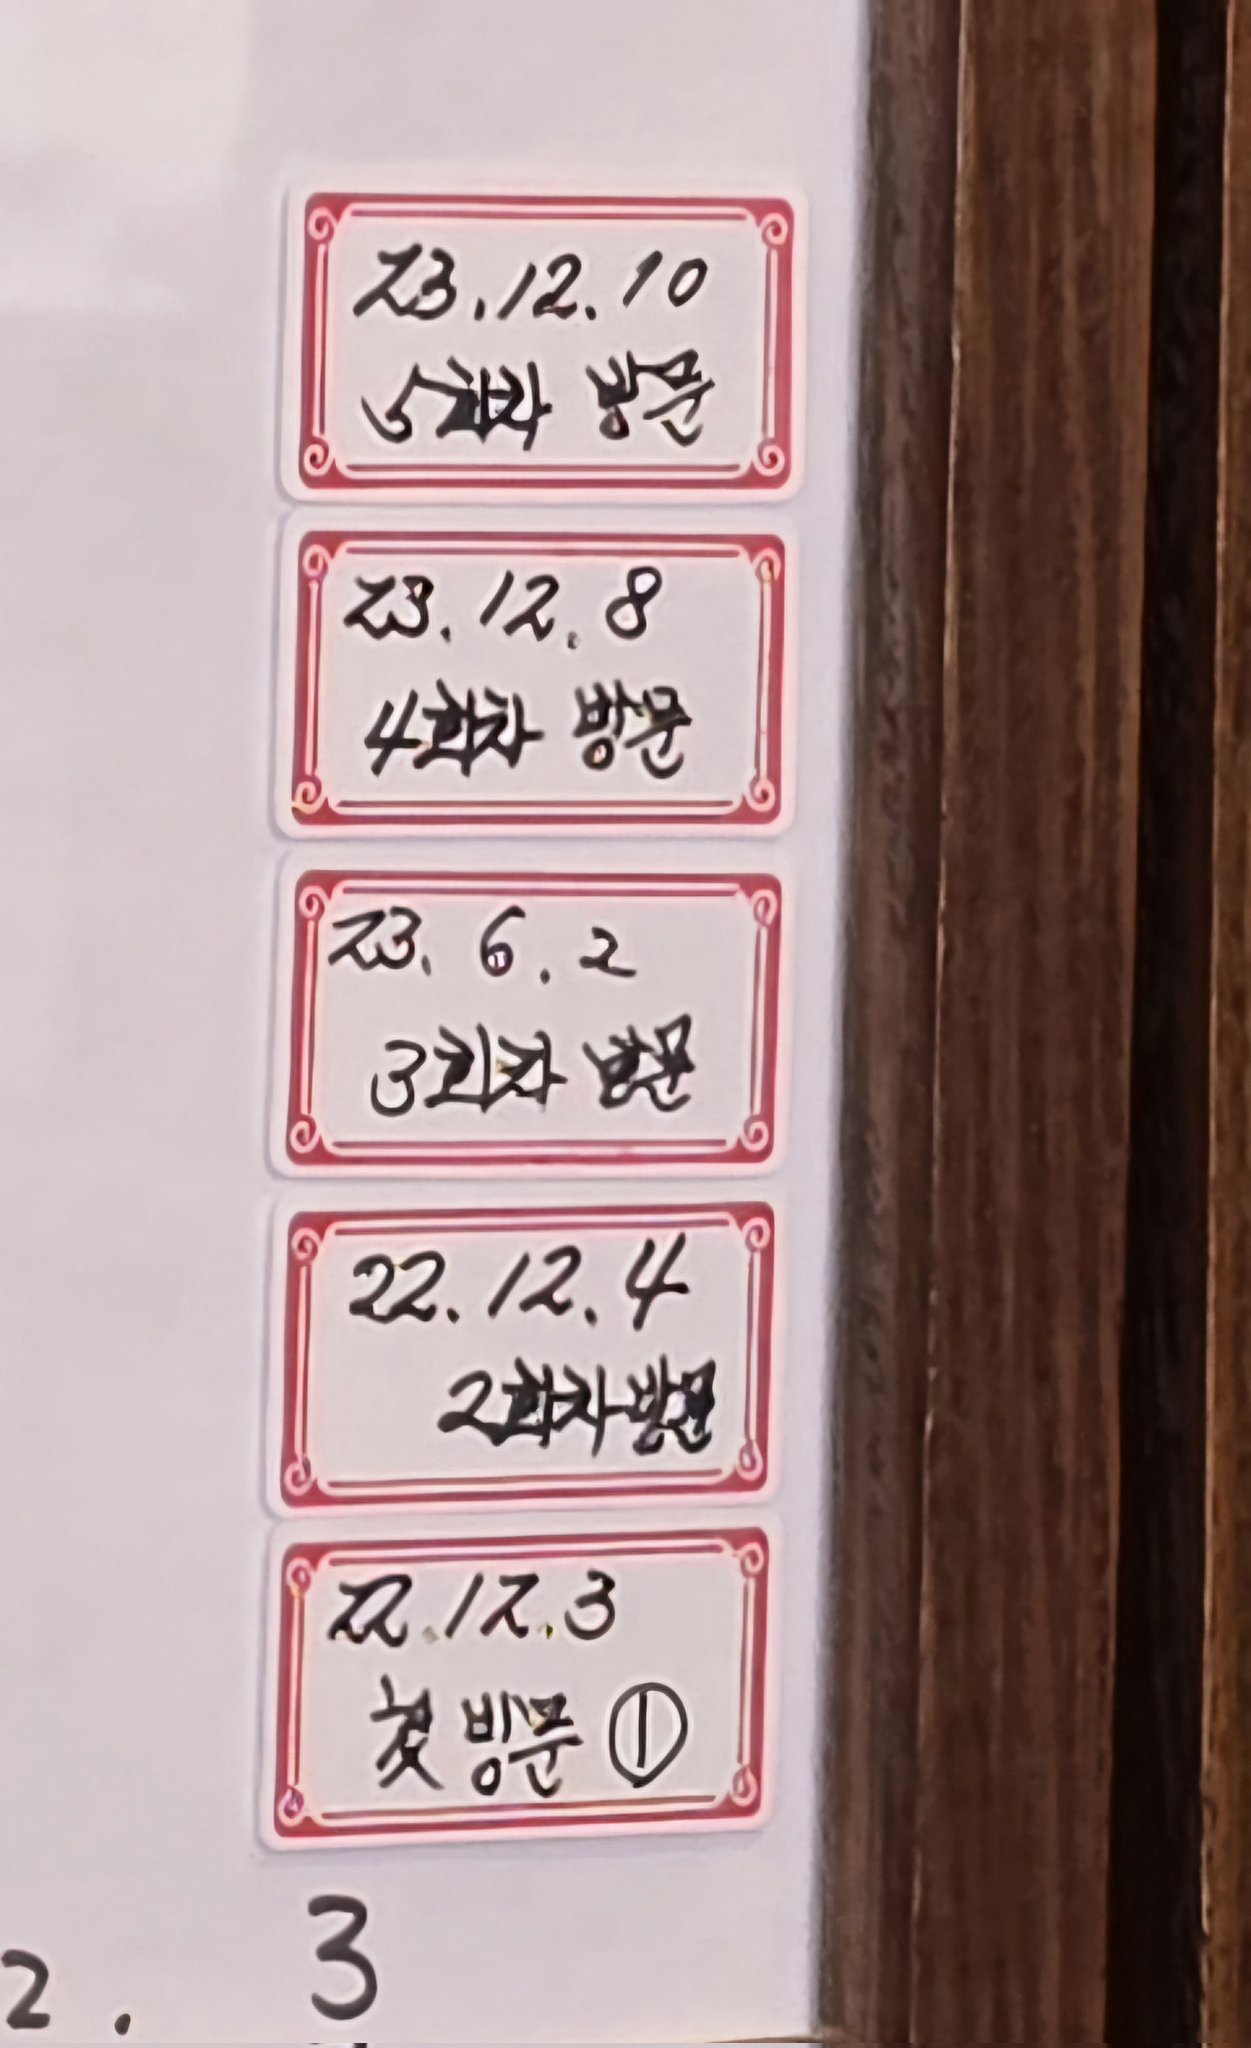 23.12.10
5회차 방문
23.12.8
4회차 방문
23.6.2
3회차 방문
22.12.4
2회차 방문
22.12.3
첫 방문 ①
2. 3